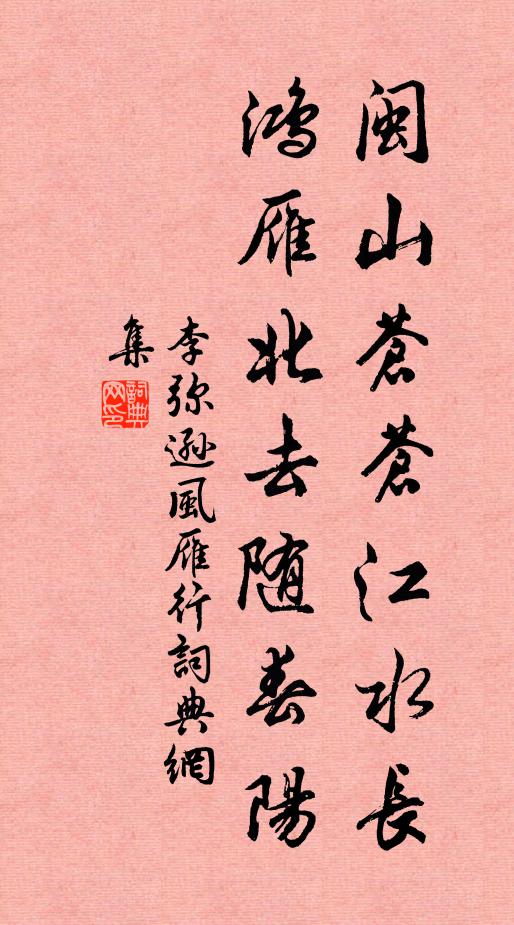 閩山蒼蒼江水長
鴻雁北去随春陽
李弥遜風雁行詞典網
集
詞典
网印